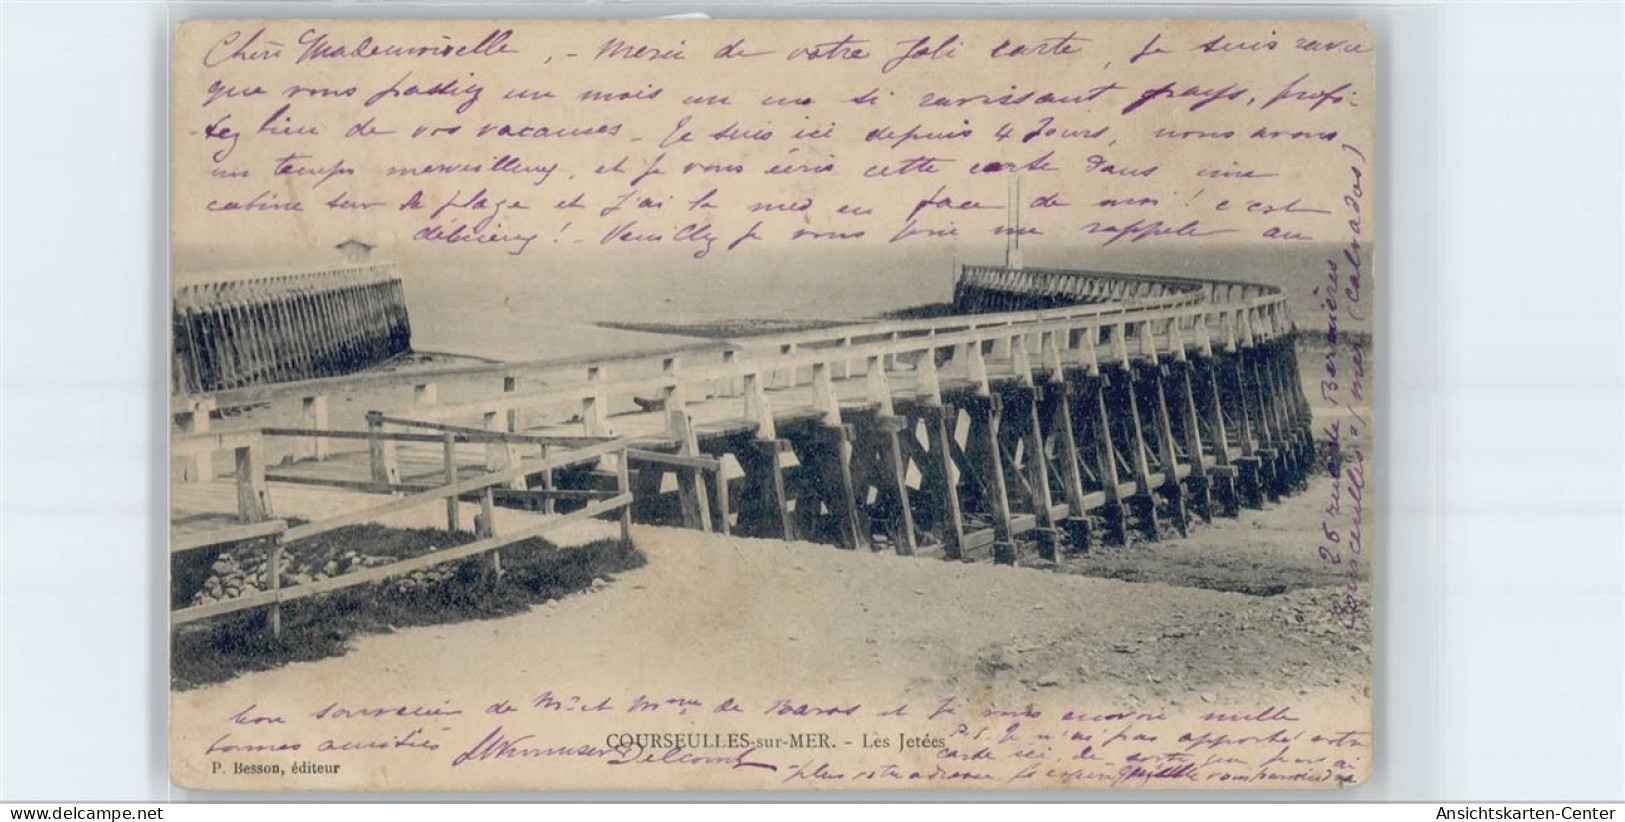 Chère Mademoiselle, - Merci de votre Joli carte, Je suis ravie
que vous passiez un mois un un si ravissant pays, profi-
tez bien de vos vacances - Je suis ici depuis 4 Jours, nous avons
un temps merveilleux, et Je vous écris cette carte dans une
cabine sur la plage et J'ai la mer en face de moi! c'est
délicieux! - Veuillez Je vous prie me rappeler au
bon souvenir de Mr et Mme de Baros et Je vous envoie mille
bonnes amitiés
Delcourt
COURSEULLES-sur-MER. - Les Jetées
P. Besson, éditeur
P.S. Je n'ai pas apporté votre
carte ici, de sorte que Je n'ai
plus votre adresse Je espère qu'elle vous parviendra
26 rue de Bernières
Courseulles s/mer (Calvados)
hippostcard.com
Ansichtskarten-Center